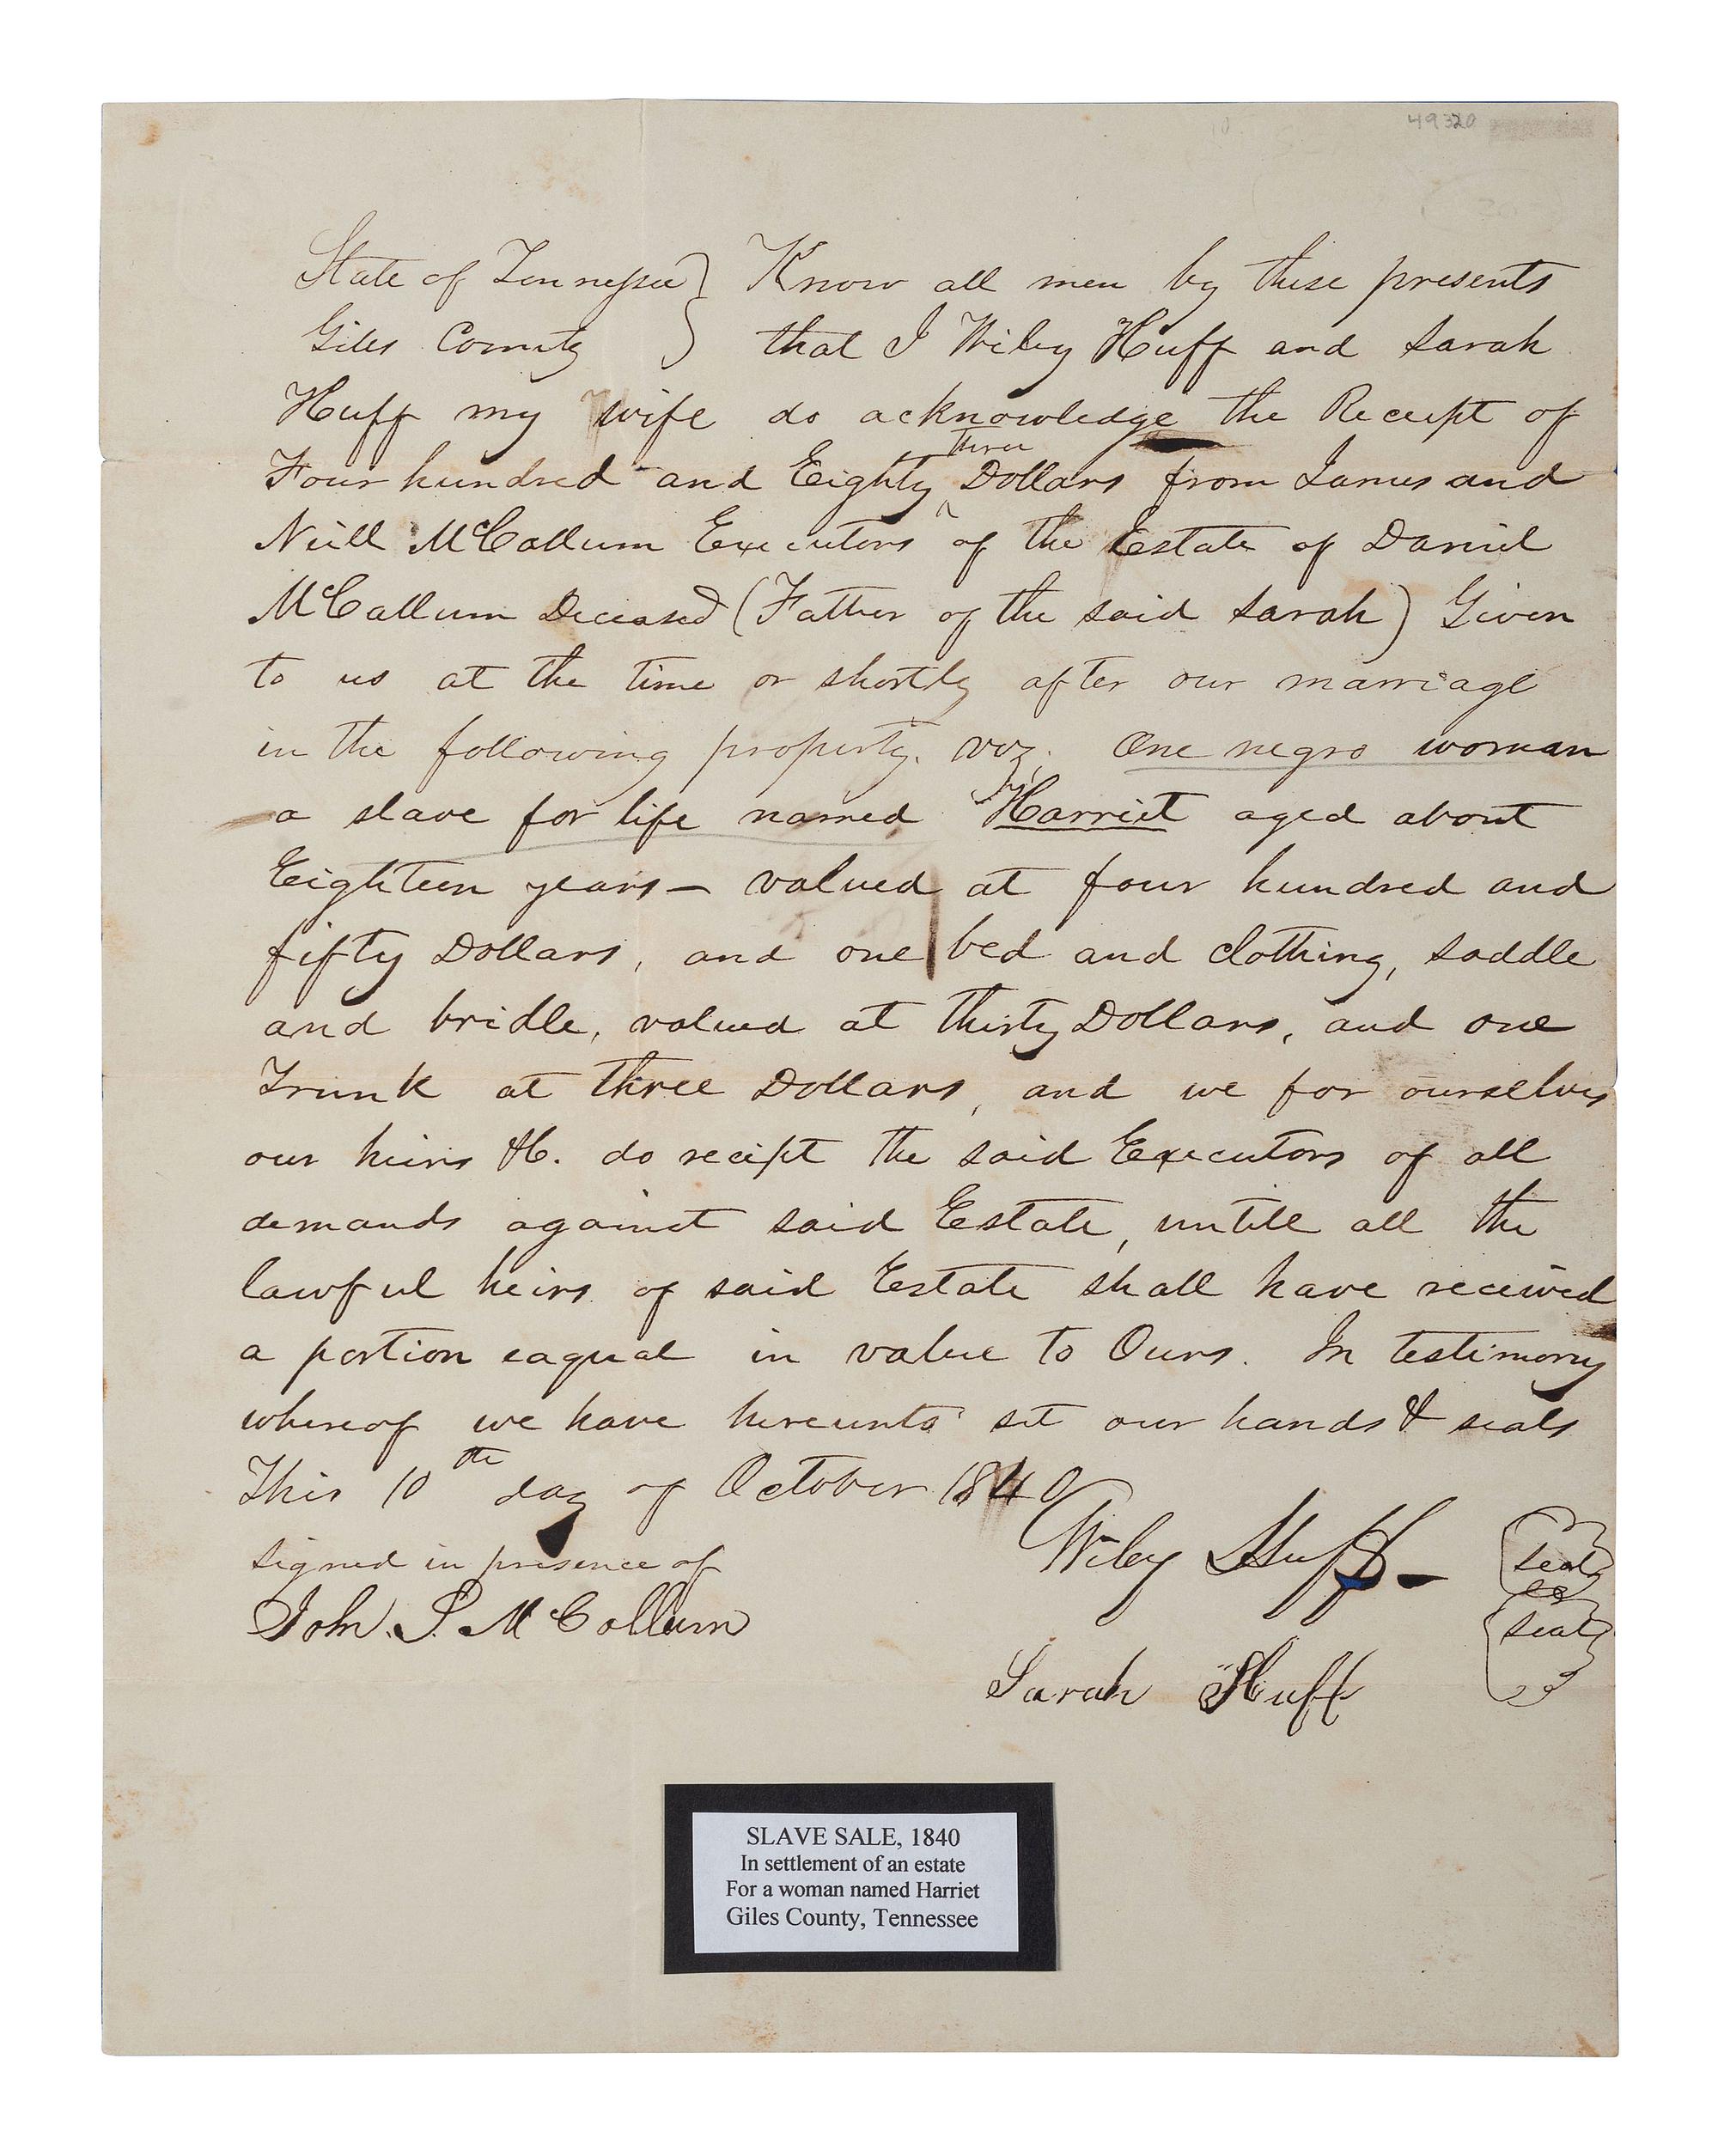 49320
State of Tennessee } Know all men by these presents
Giles County } that I Wiley Huff and Sarah
Huff my wife do acknowledge the Receipt of
Four hundred and Eighty ^three Dollars from James and
Neill McCallum Executors of the Estate of Daniel
McCallum Deceased (Father of the said Sarah) Given
to us at the time or shortly after our marriage
in the following property. viz. One negro woman
a slave for life named Harriet aged about
Eighteen years — valued at four hundred and
fifty Dollars, and one bed and clothing, saddle
and bridle, valued at thirty Dollars, and one
Trunk at three Dollars, and we for ourselves
our heirs &C. do receipt the said Executors of all
demands against said Estate, untill all the
lawful heirs of said Estate shall have received
a portion eaqual in value to Ours. In testimony
whereof we have hereunto set our hands & seals
This 10th day of October 1840
Wiley Huff — Seal
signed in presence of
John. S. McCollum
Sarah Huff Seal
SLAVE SALE, 1840
In settlement of an estate
For a woman named Harriet
Giles County, Tennessee